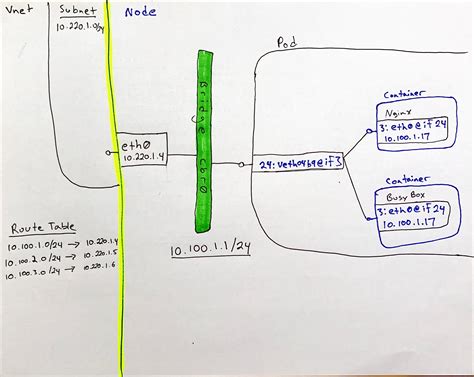 Vnet
Subnet
10.220.1.0/24
Node
Pod
Container
Nginx
3: eth0@if24
10.100.1.17
eth0
10.220.1.4
Bridge cbr0
24: veth04b9@if3
Container
Busy Box
3: eth0@if24
10.100.1.17
10.100.1.1/24
Route Table
10.100.1.0/24 → 10.220.1.4
10.100.2.0/24 → 10.220.1.5
10.100.3.0/24 → 10.220.1.6